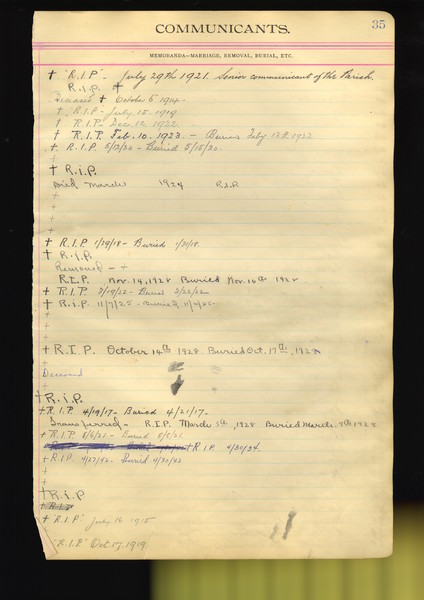 35
COMMUNICANTS.
MEMORANDA—MARRIAGE, REMOVAL, BURIAL, ETC.
† "R.I.P" - July 29th 1921. Senior communicant of the Parish.
R.I.P. †
† October 5
† R.I.P - July 15. 1919
† R.I.P - Dec. 12. 1922
† R.I.P. Feb. 10. 1923. - Buried Feb'y
† R.I.P. 5/12/20 - Buried 5/15/20.
† R.i.P.
Died March 1924 R.I.P.
† R.I.P 1/29/18 - Buried 1/31/18.
† R.I.P.
Removed - +
R.I.P. Nov. 14, 1928 Buried Nov. 16th 1928
† R.I.P. 2/19/22 - Buried 2/22/22
† R.I.P. 11/7/25 - Buried
† R.I.P. October 14th 1928 Buried Oct. 17th, 1928
Deceased
† R.i.P.
† R.I.P. 4/19/17 - Buried 4/21/17 -
Transferred - R.I.P. March 5th, 1928 Buried March 8th 1928
† R.I.P 5/6/21 - Buried
† R.I.P. 4/30/34.
† R.I.P. 4/27/42. Buried 4/30/42
† R.i.P
† R.I.P
† "R.I.P" July 16 1915
"R.I.P" Oct. 17. 1919